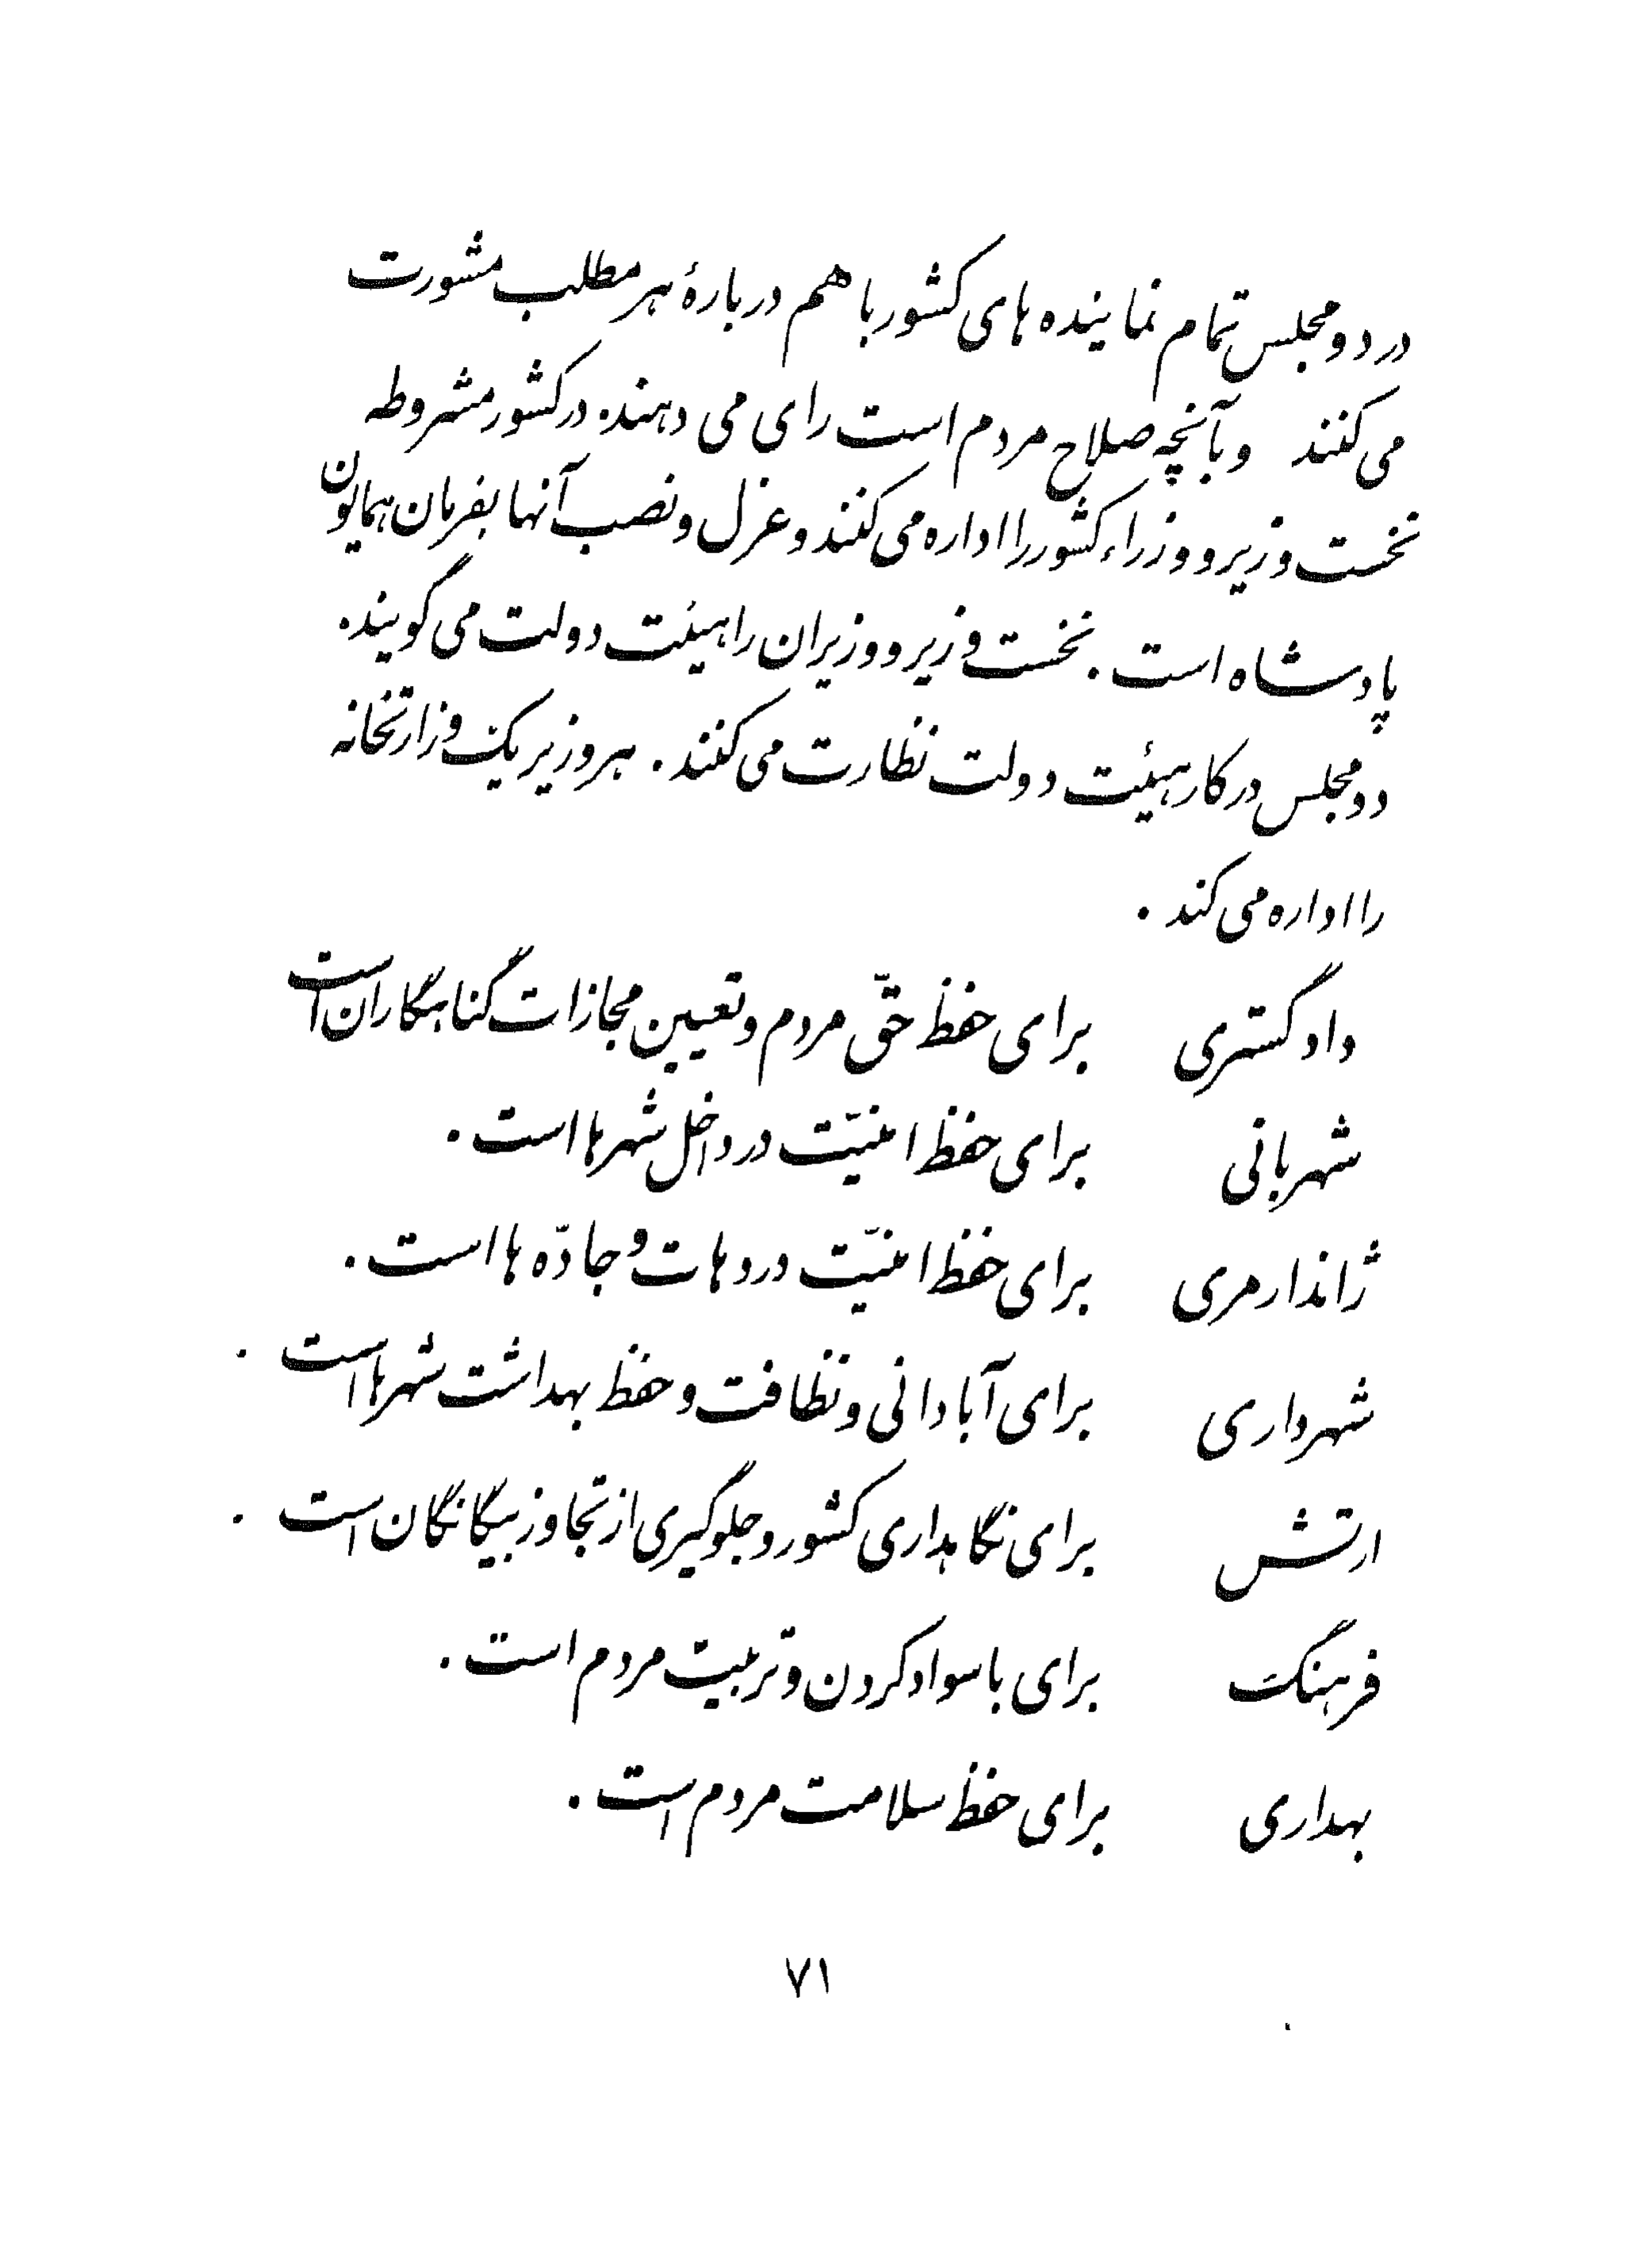 در دو مجلس تمام نماینده های کشور با هم دربارهٔ هر مطلب مشورت
می کنند و بآنچه صلاح مردم است رای می دهند. در کشور مشروطه
نخست وزیر و وزراء کشور را اداره می کنند و عزل و نصب آنها بفرمان همایون
پادشاه است. نخست وزیر و وزیران را هیئت دولت می گویند.
دو مجلس در کار هیئت دولت نظارت می کنند. هر وزیر یک وزارتخانه
را اداره می کند.
دادگستری برای حفظ حقّ مردم و تعیین مجازات گناهگاران است
شهربانی برای حفظ امنیّت در داخل شهرها است.
ژاندارمری برای حفظ امنیّت در دهات و جادّه ها است.
شهرداری برای آبادانی و نظافت و حفظ بهداشت شهرها است.
ارتش برای نگاهداری کشور و جلوگیری از تجاوز بیگانگان است.
فرهنگ برای باسواد کردن و تربیت مردم است.
بهداری برای حفظ سلامت مردم است.
۷۱